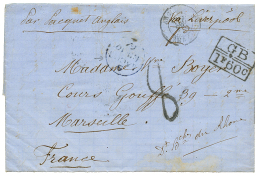 Par Paquet Anglais Via Liverpool
GB
1F60c
Madame Boyer
Cours Gouffé 39
Marseille
8
du Rhône
France